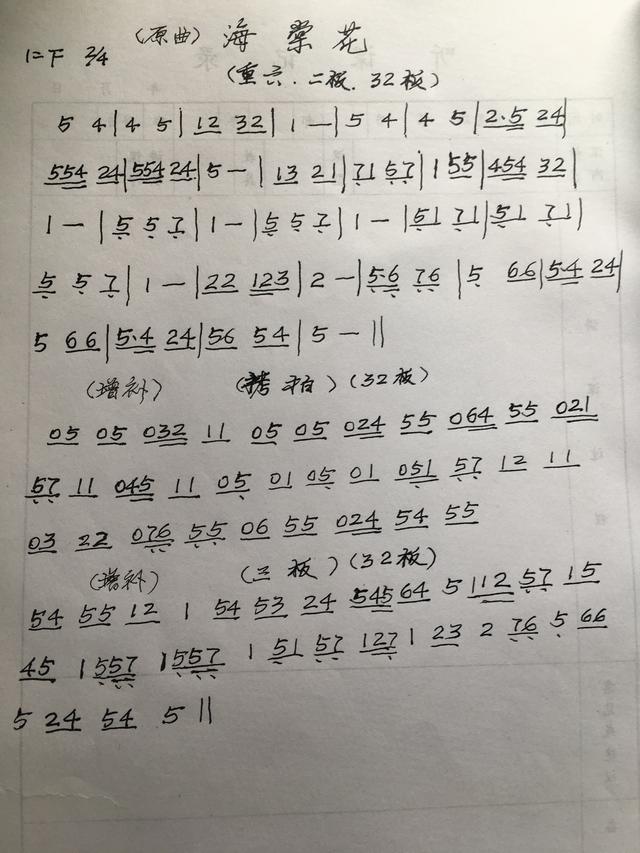 (原曲) 海棠花
1=F 2/4
(重六.二板.32板)
5 4|4 5|12 32|1 —|5 4|4 5|2·5 24|
554 24|554 24|5 —|13 21|71 57|1 55|454 32|
1 —|5 5 7|1 —|5 5 7|1 —|51 71|51 71|
5 5 7|1 —|22 123|2 —|5·6 76|5 66|5·4 24|
5 66|5·4 24|56 54|5 —||
(增补) (拷拍)(32板)
05 05 032 11 05 05 024 55 064 55 021
57 11 045 11 05 01 05 01 051 57 12 11
03 22 076 55 06 55 024 54 55
(增补) (三板)(32板)
54 55 12 1 54 53 24 545 64 5 112 57 15
45 1 557 1 557 1 51 57 127 1 23 2 76 5 66
5 24 54 5||